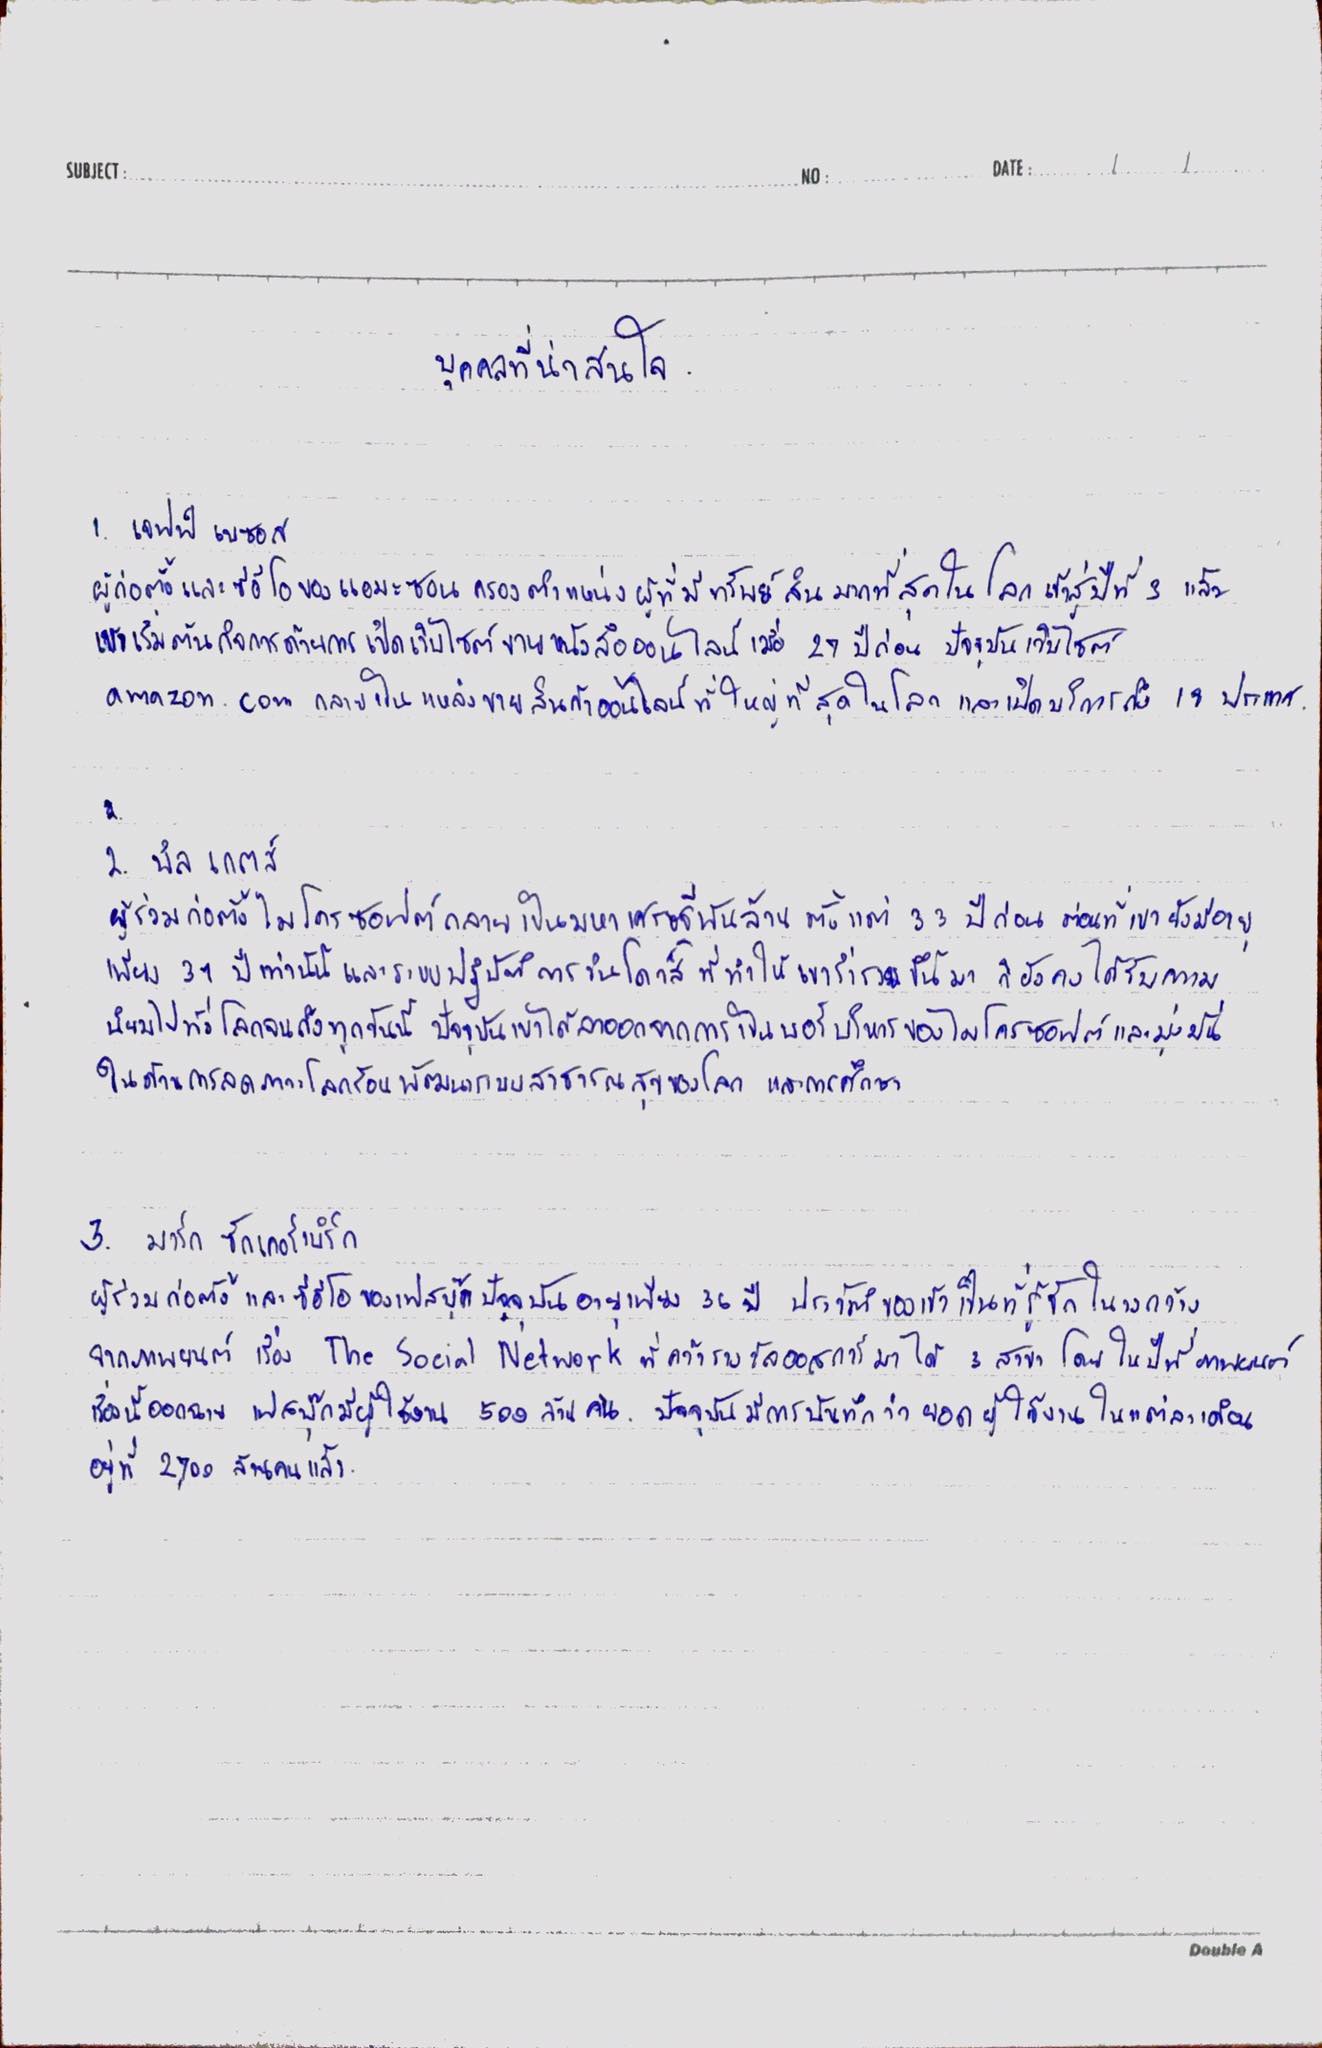 SUBJECT : NO : DATE : / /
บุคคลที่น่าสนใจ.
1. เจฟฟ์ เบซอส
ผู้ก่อตั้ง และ ซีอีโอ ของ แอมะซอน ครองตำแหน่ง ผู้ที่มีทรัพย์สินมากที่สุดใน โลก เข้าสู่ปีที่ 3 แล้ว
เขาเริ่มต้น กิจการด้วยการ เปิดเว็บไซต์ ขายหนังสือออนไลน์ เมื่อ 27 ปีก่อน ปัจจุบันเว็บไซต์
amazon. com กลายเป็น แหล่งขายสินค้าออนไลน์ ที่ใหญ่ที่สุดในโลก และเปิดบริการถึง 18 ประเทศ.
2.
2. บิล เกตส์
ผู้ร่วมก่อตั้ง ไมโครซอฟต์ กลายเป็นมหาเศรษฐีพันล้าน ตั้งแต่ 33 ปีก่อน ตอนที่เขายังมีอายุ
เพียง 31 ปีเท่านั้น และระบบปฏิบัติการวินโดวส์ ที่ทำให้เขาร่ำรวยขึ้นมา ก็ยังคงได้รับความ
นิยมไปทั่วโลกจนถึงทุกวันนี้ ปัจจุบันเขาได้ลาออกจากการเป็นบอร์บริหารของไมโครซอฟต์ และมุ่งมั่น
ในด้านการลดภาวะโลกร้อน พัฒนาระบบสาธารณสุขของโลก และการศึกษา
3. มาร์ก ซักเคอร์เบิร์ก
ผู้ร่วมก่อตั้ง และซีอีโอ ของเฟสบุ๊ค ปัจจุบัน อายุเพียง 36 ปี ประวัติของเขา เป็นที่รู้จัก ในวงกว้าง
จากภาพยนต์ เรื่อง The Social Network ที่คว้ารางวัลออสการ์ มาได้ 3 สาขา โดยในปีที่ภาพยนต์
เรื่องนี้ออกฉาย เฟสบุ๊กมีผู้ใช้งาน 500 ล้าน คน. ปัจจุบันมีการบันทึกว่า ยอดผู้ใช้งานในแต่ละเดือน
อยู่ที่ 2700 ล้านคนแล้ว.
Double A